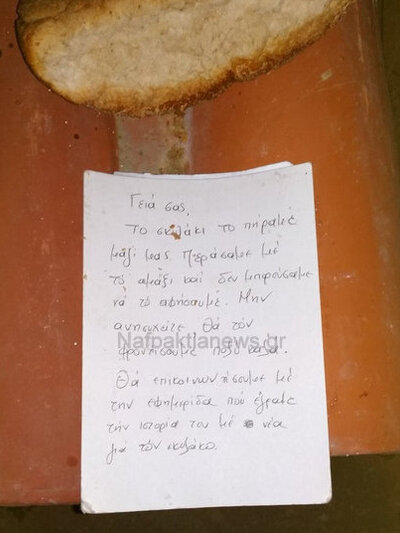 Γειά σας,
Το σκυλάκι το πήραμε
μαζί μας. Περάσαμε με
το αμάξι και δεν μπορούσαμε
να το αφήσουμε. Μην
ανησυχείτε θα τον
φροντίσουμε πολύ καλά.
Nafpaktianews.gr
Θα επικοινωνήσουμε με
την εφημερίδα που έγραψε
την ιστορία του με νέα
για τον σκυλάκο.